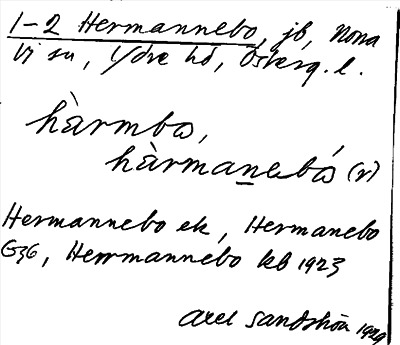 1-2 Hermannebo, jb, Norra
Vi sn, Ydre hd, Österg. l.
hàrmbo,
hàrmanebó (r)
Hermannebo ek, Hermanebo
G36, Herrmannebo kb 1923
Axel 1929